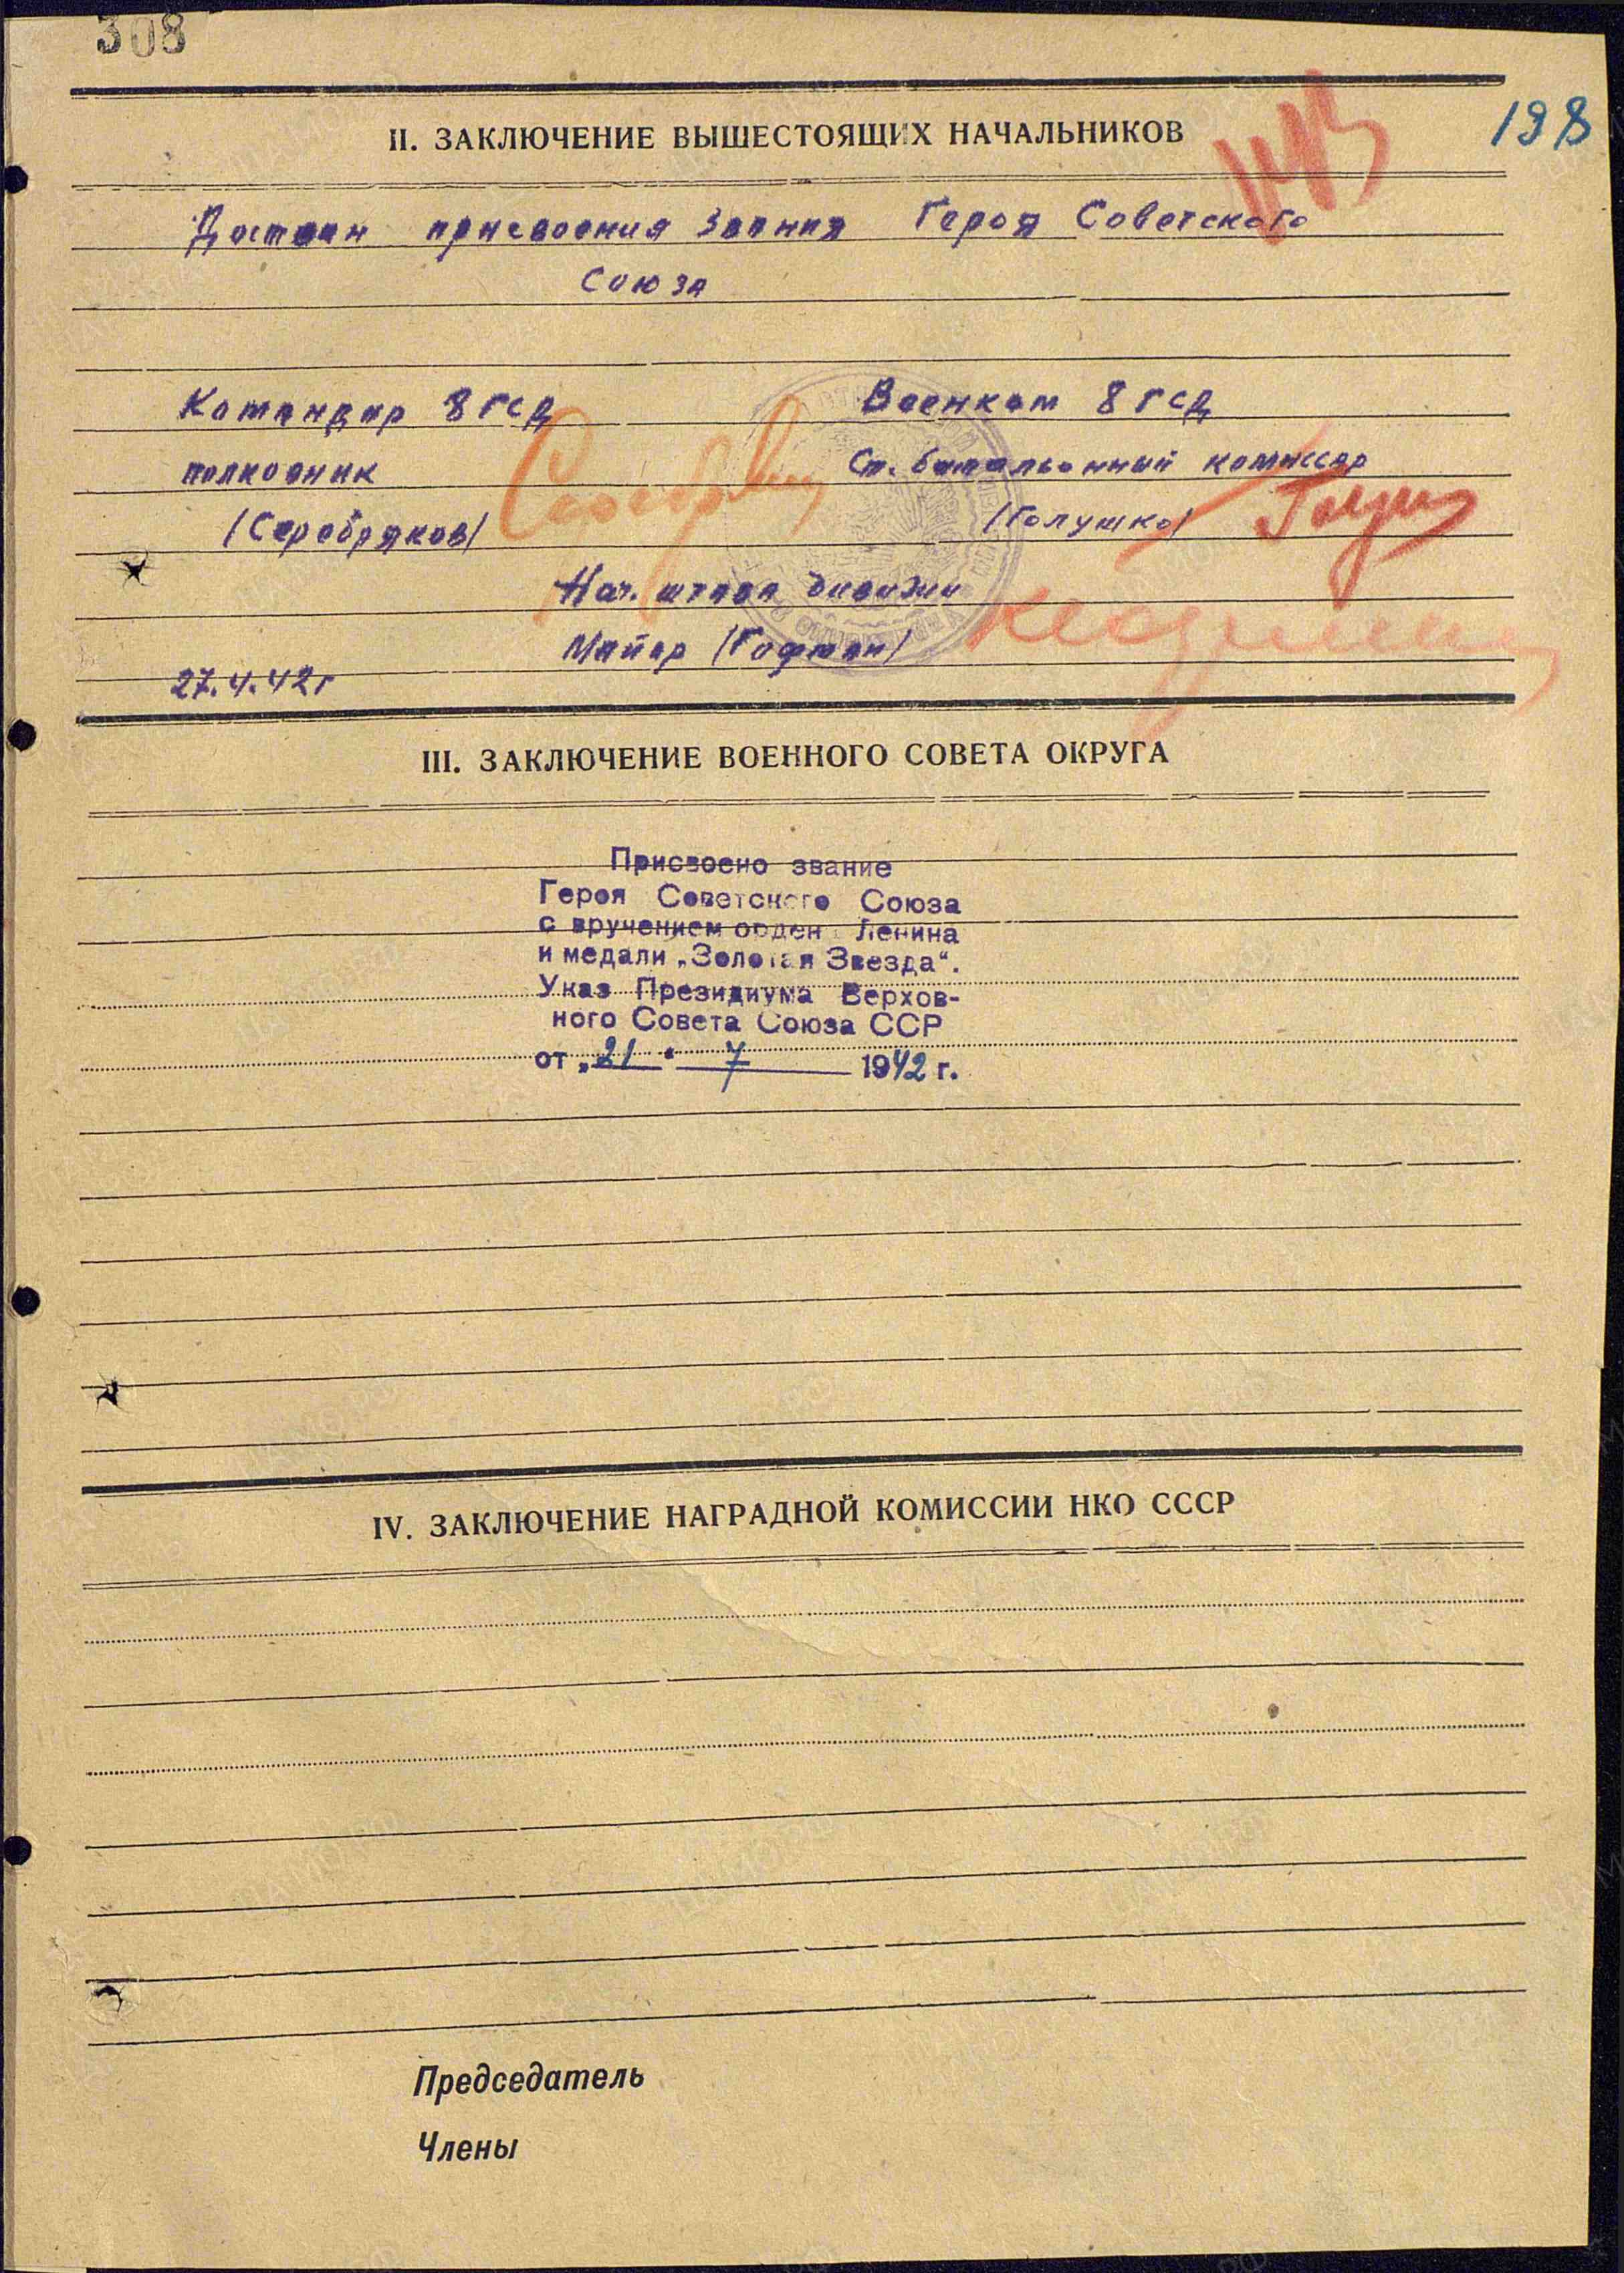 308
198
II. ЗАКЛЮЧЕНИЕ ВЫШЕСТОЯЩИХ НАЧАЛЬНИКОВ
Достоин присвоения звания Героя Советского
Союза
Командир 8 гсд Военком 8 гсд
полковник Ст. батальонный комиссар
(Серебряков) (Голушко)
Нач. штаба дивизии
Майор (Гофман)
27.4.42г
III. ЗАКЛЮЧЕНИЕ ВОЕННОГО СОВЕТА ОКРУГА
Присвоено звание
Героя Советского Союза
с вручением орден Ленина
и медали „Золотая Звезда“.
Указ Президиума Верхов-
ного Совета Союза ССР
от „21 " 7 1942 г.
IV. ЗАКЛЮЧЕНИЕ НАГРАДНОЙ КОМИССИИ НКО СССР
Председатель
Члены